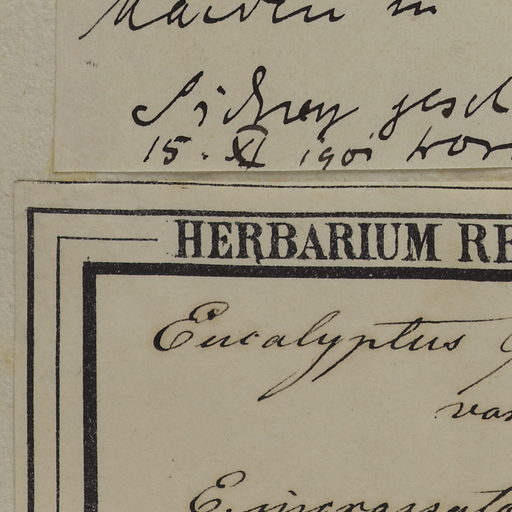 Maiden in
Sidney gesch
15. XI 1901 wor
HERBARIUM RE
Eucalyptus
var
E. incrassata